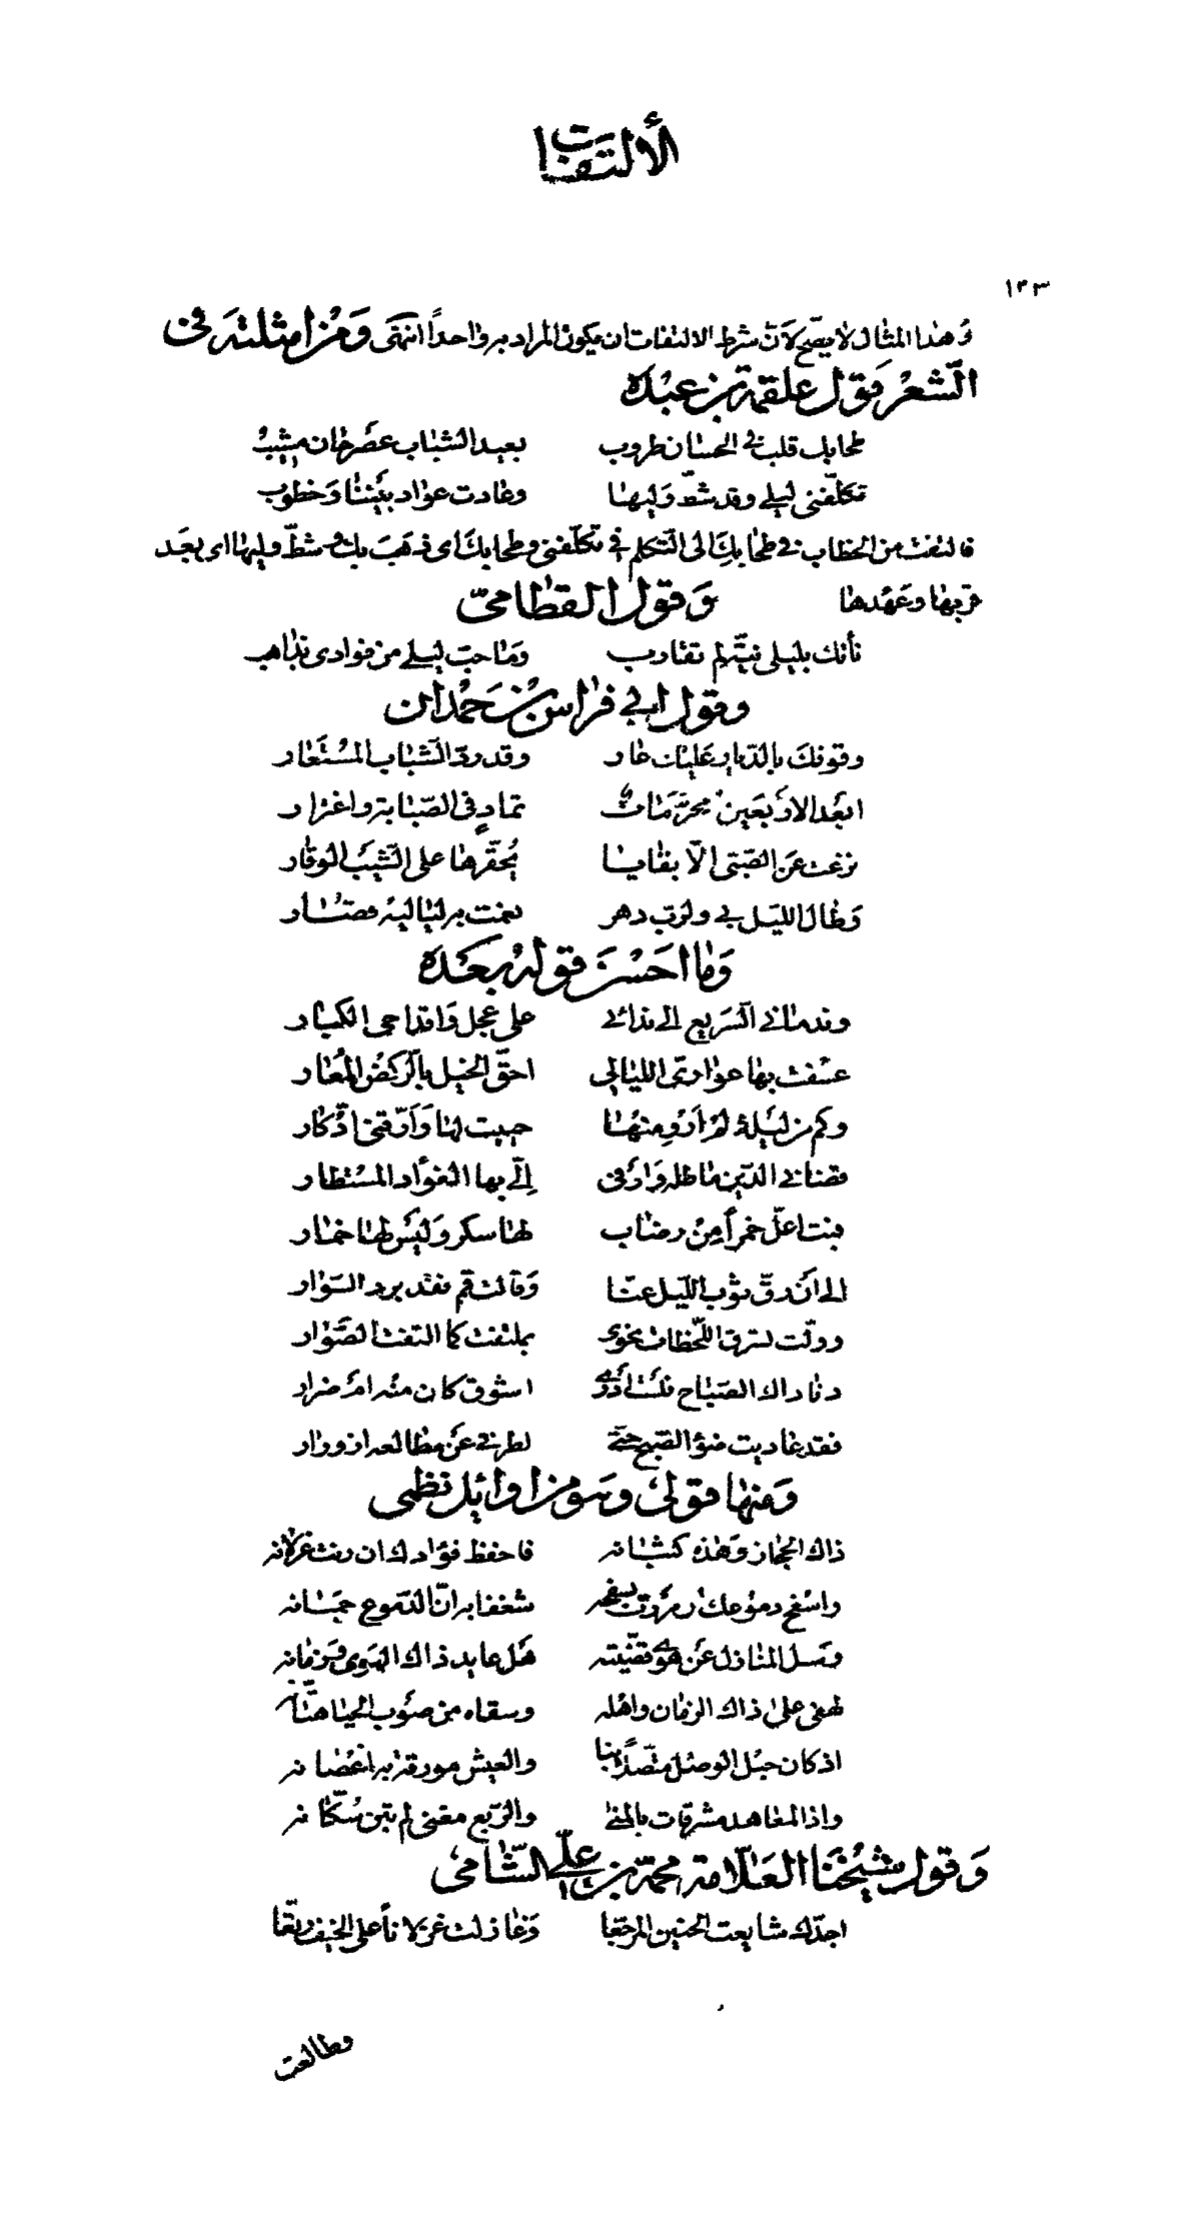 الألتفات
١٢٣
وهذا المثال لا يصح لان شرط الالتفات ان يكون المراد به واحداً انتهى ومن امثلته فى
الشعر قول علقمة بن عبدة
طحا بك قلب فى الحسان طروب بعيد الشباب عصر حان مشيب
تكلّفنى ليلى وقد شطّ وليها وعادت عواد بيننا وخطوب
فالتفت من الخطاب فى طحا بك الى التكلم فى تكلّفنى وطحا بك اى ذهب بك وشطّ وليها اى بعد
قربها وعهدها وقول القطامىّ
نأتك بليلى نيّة لم تقارب وما حبّ ليلى من فوادى بذاهب
وقول ابى فراس بن حمدان
وقوفك بالديار عليك عار وقد ردّ الشباب المستعار
ابعد الاربعين محرّمات تماد فى الصّبابة واغترار
نزعت عن الصّبى الّا بقايا يُحقّرها على الشّيب الوقار
وطال الليل بى ولربّ دهر نعمت به لياليه قصار
وما احسن قوله بعده
وندمانى السّريع الى ندائى على عجل واقداحى الكبار
عسفت بها عوارىّ الليالى احقّ الخيل بالرّكض المعار
وكم من ليلة لم ارو منها حبيبت لها وارّقنى ادّكار
قضانى الدّين ماطله ووافى إلىّ بها الفؤاد المستطار
فبت اعلّ خمراً من رضاب لها سكر وليس لها خمار
الى ان رقّ ثوب الليل عنا وقالت قم فقد برد السّوار
وولّت تسرق اللّحظات نحوى بملتفت كما التفت الصّوار
دنا داك الصّباح فلست ادرى اشوق كان منه ام ضرار
فقد عاديت ضوء الصّبح حتّى لطرفى عن مطالعه ازورار
ومنها قولى وهو من اوائل نظمى
ذاك الحجاز وهذه كثبانه فاحفظ فؤادك ان رنت غزلانه
واسفح دموعك ان مررت بسفحه شغفا به انّ الدّموع جمانه
وسل المنازل عن هوى قضّيته هل عايد ذاك الهوى وزمانه
لهفى على ذاك الزمان واهله وسقاه من صوب الحيا هتّانه
اذ كان حبل الوصل متّصلاً بنا والعيش مورقة به اغصانه
واذ المعاهد مشرقات بالمنى والرّبع مغنى لم تبن سكّانه
وقول شيخنا العلّامة محمّد بن علىّ الشّامى
اجدّك شايعت الحنين المرجّعا وغازلت غزلاناً على الخيف رتّعا
وطالعت